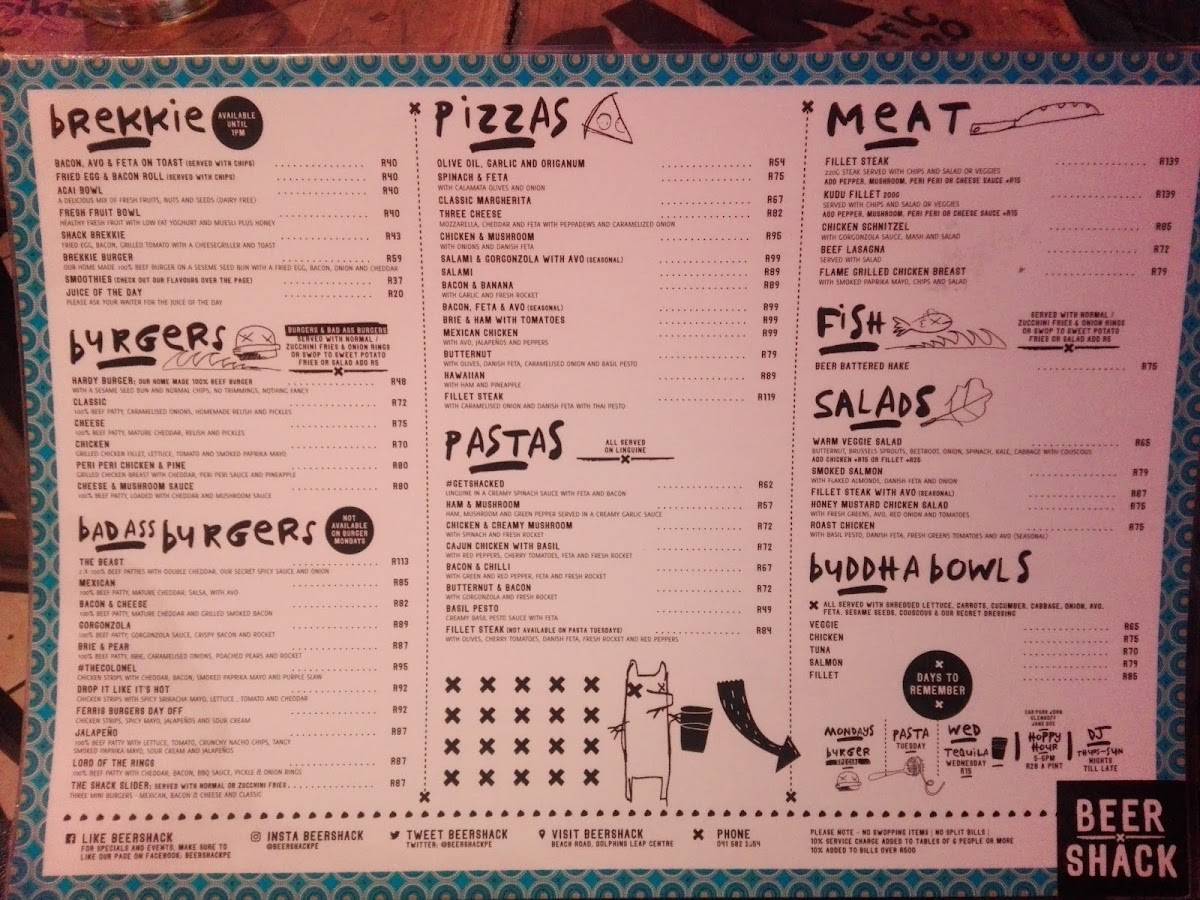 brekkie
AVAILABLE UNTIL 1PM
BACON, AVO & FETA ON TOAST (SERVED WITH CHIPS) R40
FRIED EGG & BACON ROLL (SERVED WITH CHIPS) R40
ACAI BOWL R40
A DELICIOUS MIX OF FRESH FRUITS, NUTS AND SEEDS (DAIRY FREE)
FRESH FRUIT BOWL R40
HEALTHY FRESH FRUIT WITH LOW FAT YOGHURT AND MUESLI PLUS HONEY
SHACK BREKKIE R43
FRIED EGG, BACON, GRILLED TOMATO WITH A CHEESEGRILLER AND TOAST
BREKKIE BURGER R59
OUR HOME MADE 100% BEEF BURGER ON A SESEME SEED BUN WITH A FRIED EGG, BACON, ONION AND CHEDDAR
SMOOTHIES (CHECK OUT OUR FLAVOURS OVER THE PAGE) R37
JUICE OF THE DAY R20
PLEASE ASK YOUR WAITER FOR THE JUICE OF THE DAY
burgers
BURGERS & BAD ASS BURGERS
SERVED WITH NORMAL /
ZUCCHINI FRIES & ONION RINGS
OR SWOP TO SWEET POTATO
FRIES OR SALAD ADD R5
HARDY BURGER: OUR HOME MADE 100% BEEF BURGER R48
WITH A SESAME SEED BUN AND NORMAL CHIPS, NO TRIMMINGS, NOTHING FANCY
CLASSIC R72
100% BEEF PATTY, CARAMELISED ONIONS, HOMEMADE RELISH AND PICKLES
CHEESE R75
100% BEEF PATTY, MATURE CHEDDAR, RELISH AND PICKLES
CHICKEN R70
GRILLED CHICKEN FILLET, LETTUCE, TOMATO AND SMOKED PAPRIKA MAYO
PERI PERI CHICKEN & PINE R80
GRILLED CHICKEN BREAST WITH CHEDDAR, PERI PERI SAUCE AND PINEAPPLE
CHEESE & MUSHROOM SAUCE R80
100% BEEF PATTY, LOADED WITH CHEDDAR AND MUSHROOM SAUCE
bad ass burgers
NOT AVAILABLE ON BURGER MONDAYS
THE BEAST R113
2 X 100% BEEF PATTIES WITH DOUBLE CHEDDAR, OUR SECRET SPICY SAUCE AND ONION
MEXICAN R85
100% BEEF PATTY, MATURE CHEDDAR, SALSA, WITH AVO
BACON & CHEESE R82
100% BEEF PATTY, MATURE CHEDDAR AND GRILLED SMOKED BACON
GORGONZOLA R89
100% BEEF PATTY, GORGONZOLA SAUCE, CRISPY BACON AND ROCKET
BRIE & PEAR R87
100% BEEF PATTY, BRIE, CARAMELISED ONIONS, POACHED PEARS AND ROCKET
#THECOLONEL R95
CHICKEN STRIPS WITH CHEDDAR, BACON, SMOKED PAPRIKA MAYO AND PURPLE SLAW
DROP IT LIKE IT'S HOT R92
CHICKEN STRIPS WITH SPICY SRIRACHA MAYO, LETTUCE, TOMATO AND CHEDDAR
FERRIS BURGERS DAY OFF R92
CHICKEN STRIPS, SPICY MAYO, JALAPEÑOS AND SOUR CREAM
JALAPEÑO R87
100% BEEF PATTY WITH LETTUCE, TOMATO, CRUNCHY NACHO CHIPS, TANGY
SMOKED PAPRIKA MAYO, SOUR CREAM AND JALAPEÑOS
LORD OF THE RINGS R87
100% BEEF PATTY WITH CHEDDAR, BACON, BBQ SAUCE, PICKLE & ONION RINGS
THE SHACK SLIDER: SERVED WITH NORMAL OR ZUCCHINI FRIES R87
THREE MINI BURGERS - MEXICAN, BACON & CHEESE AND CLASSIC
PIZZAS
OLIVE OIL, GARLIC AND ORIGANUM R54
SPINACH & FETA R75
WITH CALAMATA OLIVES AND ONION
CLASSIC MARGHERITA R67
THREE CHEESE R82
MOZZARELLA, CHEDDAR AND FETA WITH PEPPADEWS AND CARAMELIZED ONION
CHICKEN & MUSHROOM R95
WITH ONIONS AND DANISH FETA
SALAMI & GORGONZOLA WITH AVO (SEASONAL) R99
SALAMI R89
BACON & BANANA R89
WITH GARLIC AND FRESH ROCKET
BACON, FETA & AVO (SEASONAL) R99
BRIE & HAM WITH TOMATOES R99
MEXICAN CHICKEN R99
WITH AVO, JALAPEÑOS AND PEPPERS
BUTTERNUT R79
WITH OLIVES, DANISH FETA, CARAMELISED ONION AND BASIL PESTO
HAWAIIAN R89
WITH HAM AND PINEAPPLE
FILLET STEAK R119
WITH CARAMELISED ONION AND DANISH FETA WITH THAI PESTO
PASTAS
ALL SERVED
ON LINGUINE
#GETSHACKED R62
LINGUINE IN A CREAMY SPINACH SAUCE WITH FETA AND BACON
HAM & MUSHROOM R57
HAM, MUSHROOM AND GREEN PEPPER SERVED IN A CREAMY GARLIC SAUCE
CHICKEN & CREAMY MUSHROOM R72
WITH SPINACH AND FRESH ROCKET
CAJUN CHICKEN WITH BASIL R72
WITH RED PEPPERS, CHERRY TOMATOES, FETA AND FRESH ROCKET
BACON & CHILLI R67
WITH GREEN AND RED PEPPER, FETA AND FRESH ROCKET
BUTTERNUT & BACON R72
WITH GORGONZOLA AND FRESH ROCKET
BASIL PESTO R49
CREAMY BASIL PESTO SAUCE WITH FETA
FILLET STEAK (NOT AVAILABLE ON PASTA TUESDAYS) R84
WITH OLIVES, CHERRY TOMATOES, DANISH FETA, FRESH ROCKET AND RED PEPPERS
MEAT
FILLET STEAK R139
220G STEAK SERVED WITH CHIPS AND SALAD OR VEGGIES
ADD PEPPER, MUSHROOM, PERI PERI OR CHEESE SAUCE +R15
KUDU FILLET 200G R139
SERVED WITH CHIPS AND SALAD OR VEGGIES
ADD PEPPER, MUSHROOM, PERI PERI OR CHEESE SAUCE +R15
CHICKEN SCHNITZEL R85
WITH GORGONZOLA SAUCE, MASH AND SALAD
BEEF LASAGNA R72
SERVED WITH SALAD
FLAME GRILLED CHICKEN BREAST R79
WITH SMOKED PAPRIKA MAYO, CHIPS AND SALAD
FISH
SERVED WITH NORMAL /
ZUCCHINI FRIES & ONION RINGS
OR SWOP TO SWEET POTATO
FRIES OR SALAD ADD R5
BEER BATTERED HAKE R75
SALADS
WARM VEGGIE SALAD R65
BUTTERNUT, BRUSSELS SPROUTS, BEETROOT, ONION, SPINACH, KALE, CABBAGE WITH COUSCOUS
ADD CHICKEN +R15 OR FILLET +R25
SMOKED SALMON R79
WITH FLAKED ALMONDS, DANISH FETA AND ONION
FILLET STEAK WITH AVO (SEASONAL) R87
HONEY MUSTARD CHICKEN SALAD R75
WITH FRESH GREENS, AVO, RED ONION AND TOMATOES
ROAST CHICKEN R75
WITH BASIL PESTO, DANISH FETA, FRESH GREENS TOMATOES AND AVO (SEASONAL)
buddha bowls
ALL SERVED WITH SHREDDED LETTUCE, CARROTS, CUCUMBER, CABBAGE, ONION, AVO,
FETA, SESAME SEEDS, COUSCOUS & OUR SECRET DRESSING
VEGGIE R65
CHICKEN R75
TUNA R70
SALMON R79
FILLET R85
DAYS TO
REMEMBER
MONDAYS
burger
SPECIAL
PASTA
TUESDAY
WED
TEQUILA
WEDNESDAY
R15
CAR PARK JOHN
GLENHOFF
JANE DOE
HOPPY
HOUR
5-6PM
R28 A PINT
DJ
THURS-SUN
NIGHTS
TILL LATE
LIKE BEERSHACK
FOR SPECIALS AND EVENTS, MAKE SURE TO
LIKE OUR PAGE ON FACEBOOK, BEERSHACKPE
INSTA BEERSHACK
@BEERSHACKPE
TWEET BEERSHACK
TWITTER: @BEERSHACKPE
VISIT BEERSHACK
BEACH ROAD, DOLPHINS LEAP CENTRE
PHONE
041 582
PLEASE NOTE - NO SWOPPING ITEMS | NO SPLIT BILLS |
10% SERVICE CHARGE ADDED TO TABLES OF 6 PEOPLE OR MORE
10% ADDED TO BILLS OVER R600
BEER
SHACK